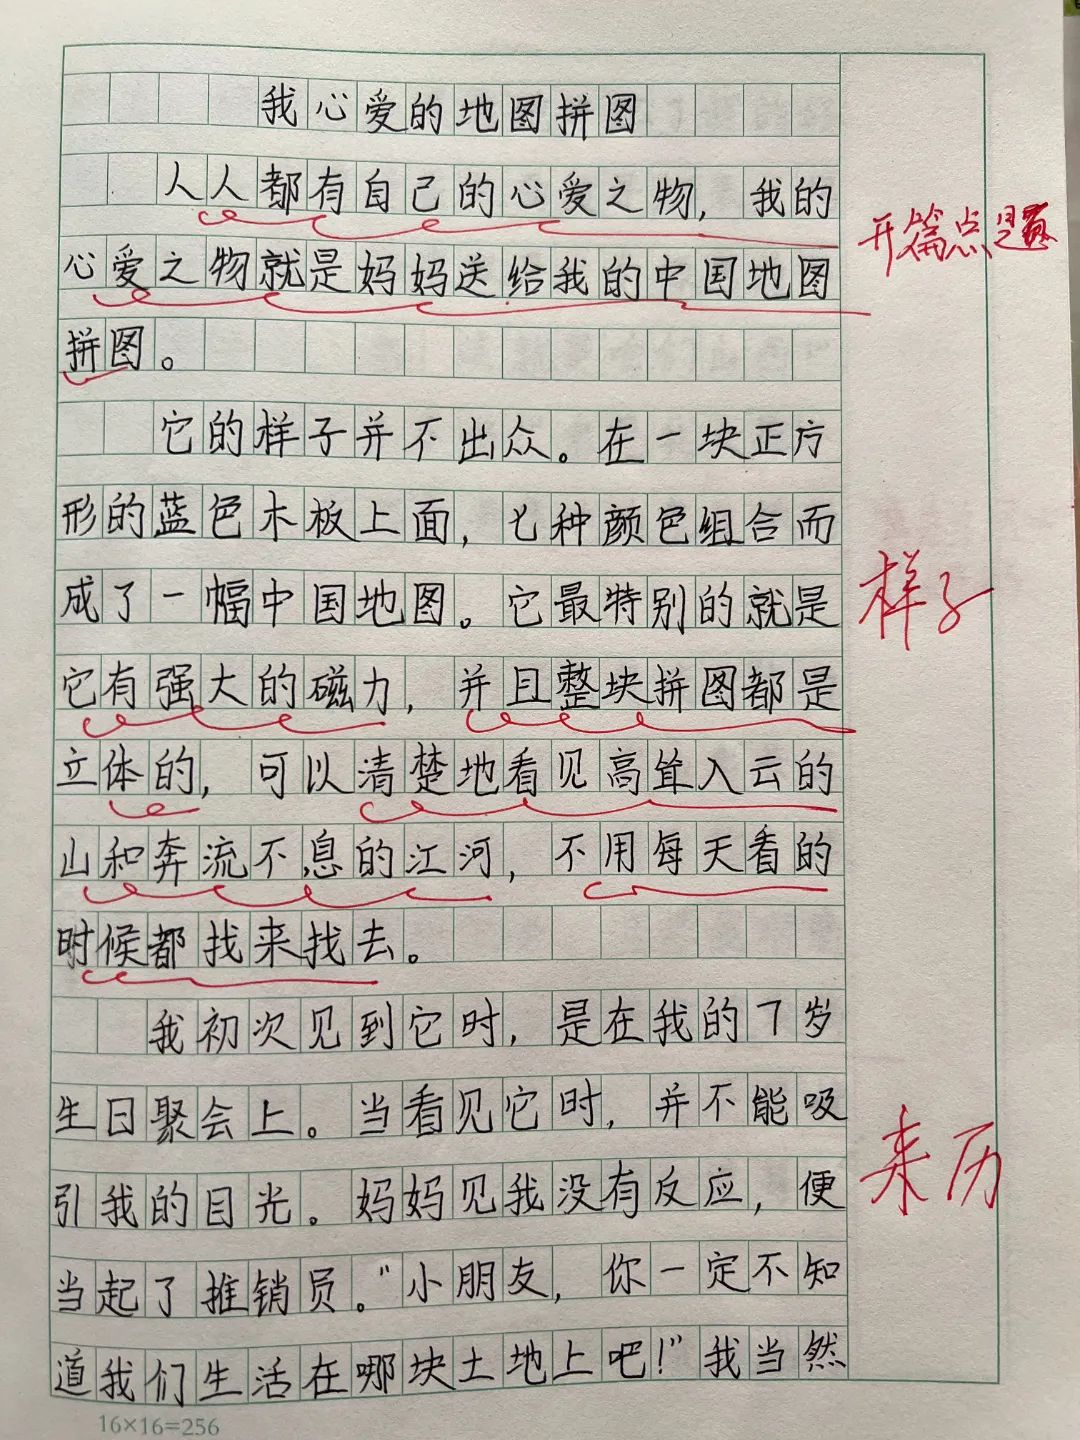 我心爱的地图拼图
人人都有自己的心爱之物，我的
开篇点题
心爱之物就是妈妈送给我的中国地图
拼图。
它的样子并不出众。在一块正方
形的蓝色木板上面，七种颜色组合而
成了一幅中国地图。它最特别的就是
样子
它有强大的磁力，并且整块拼图都是
立体的，可以清楚地看见高耸入云的
山和奔流不息的江河，不用每天看的
时候都找来找去。
我初次见到它时，是在我的7岁
生日聚会上。当看见它时，并不能吸
来历
引我的目光。妈妈见我没有反应，便
当起了推销员。“小朋友，你一定不知
道我们生活在哪块土地上吧！”我当然
16×16=256